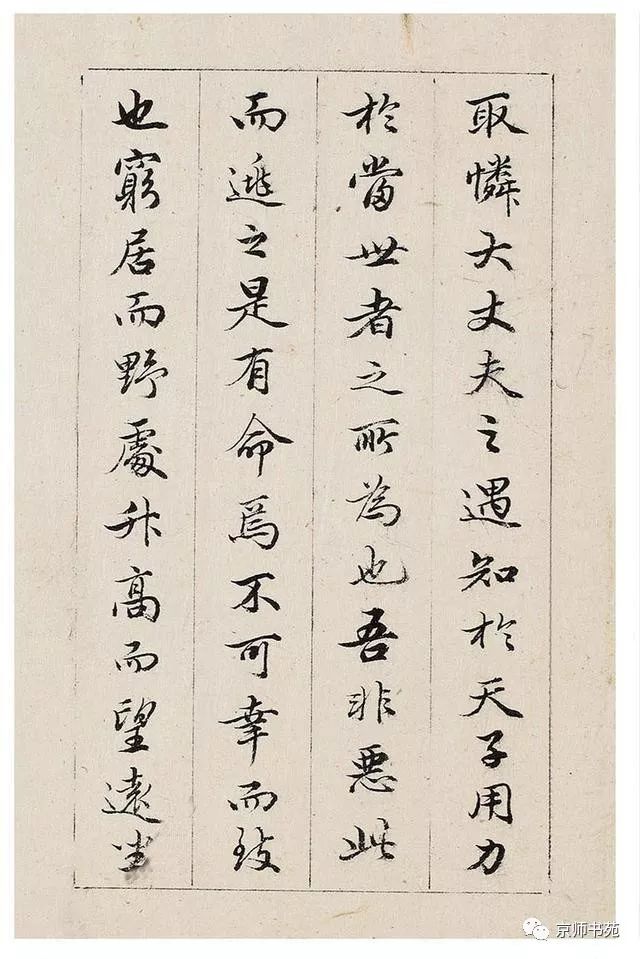 取憐大丈夫之遇知於天子用力
於當世者之所為也吾非惡此
而逃之是有命焉不可幸而致
也窮居而野處升高而望遠坐
京师书苑